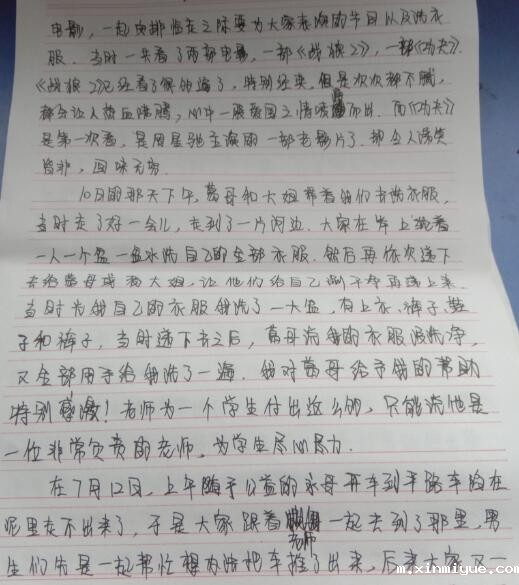 电影，一起安排临走之际要为大家表演的节目以及洗衣
服。当时一共看了两部电影，一部《战狼2》，一部《功夫》
《战狼2》已经看了很多遍了，特别经典，但是次次都不腻，
都会让人热血沸腾，心中一股爱国之情喷而出。而《功夫》
是第一次看，是周星驰主演的一部老影片了，却令人啼笑
皆非，回味无穷。
10日的那天下午，葛母和大姐带着我们去洗衣服，
当时走了好一会儿，走到了一片河边，大家在岸上
一人一个盆一盆水洗自己的全部衣服，然后再依次递下
去给葛母或和大姐，让他们给自己涮干净再递上来，
当时为我自己的衣服我洗了一大盆，有上衣、裤子、鞋
子和裤子，当时递下去之后，葛母说我的衣服没洗净，
又全部用手给我洗了一遍。我对葛母给予我的帮助
特别感激！老师为一个学生付出这么的，只能说他是
一位非常负责的老师，为学生尽心尽力。
在7月12日，上午随手公益的永母开车到半路车陷在
泥里走不出来了，于是大家跟着老师一起去到了那里，男
生们先是一起帮忙想办法把车推了出来，后来大家又一
m.xinmiyue.com